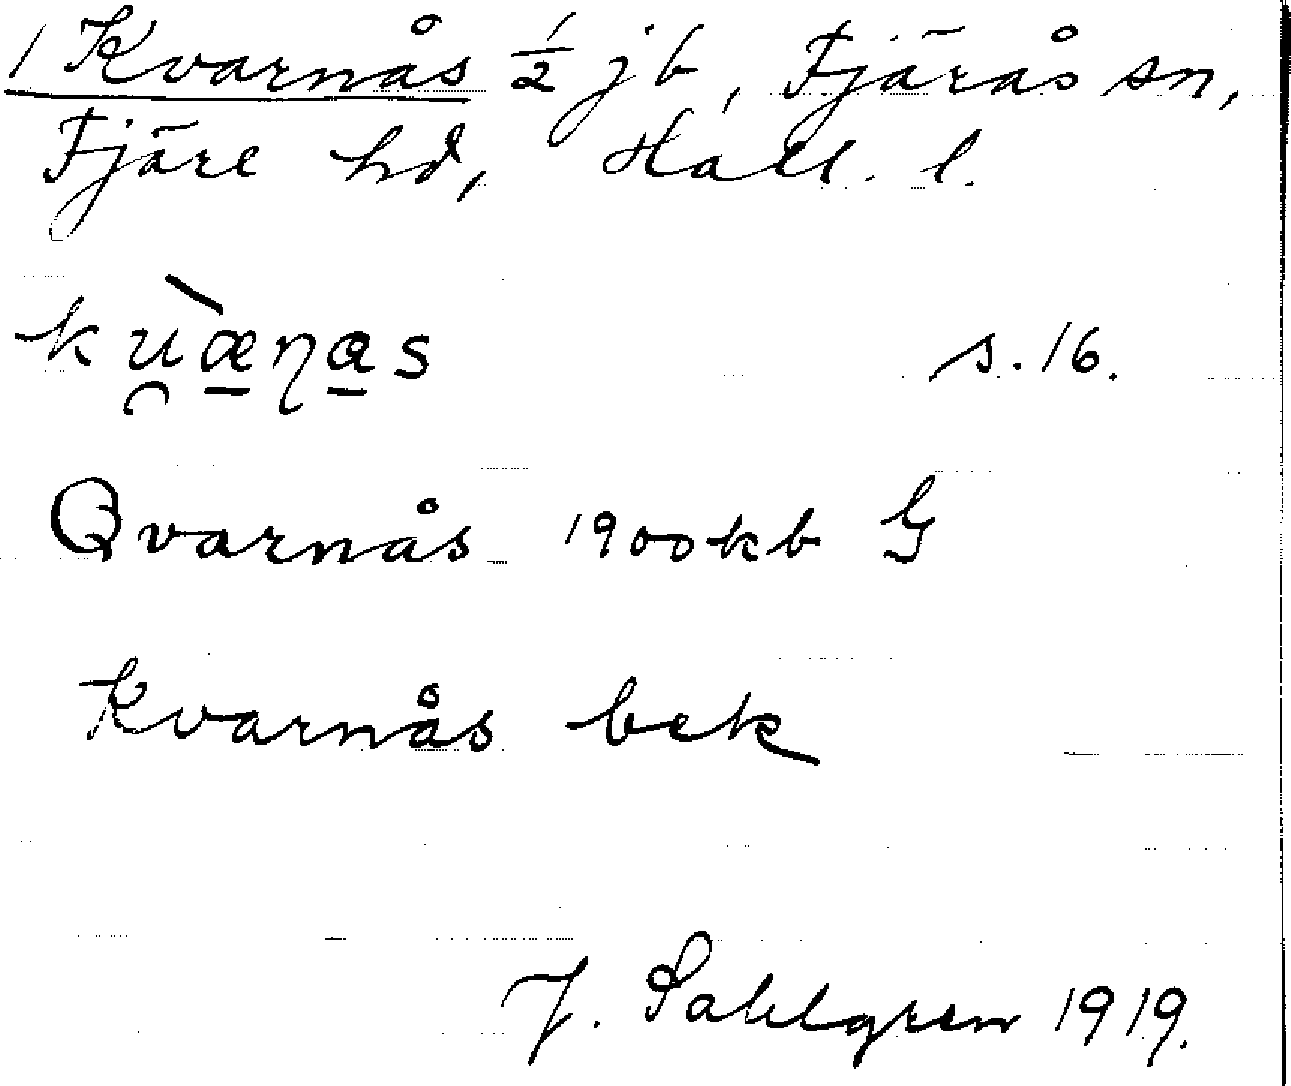 1 Kvarnås ½ jb, Fjärås sn,
Fjäre hd, Hall. l.
ku̯æ̱̀ɳa̱s s. 16.
Qvarnås 1900 kb G
Kvarnås bek
J. Sahlgren 1919.